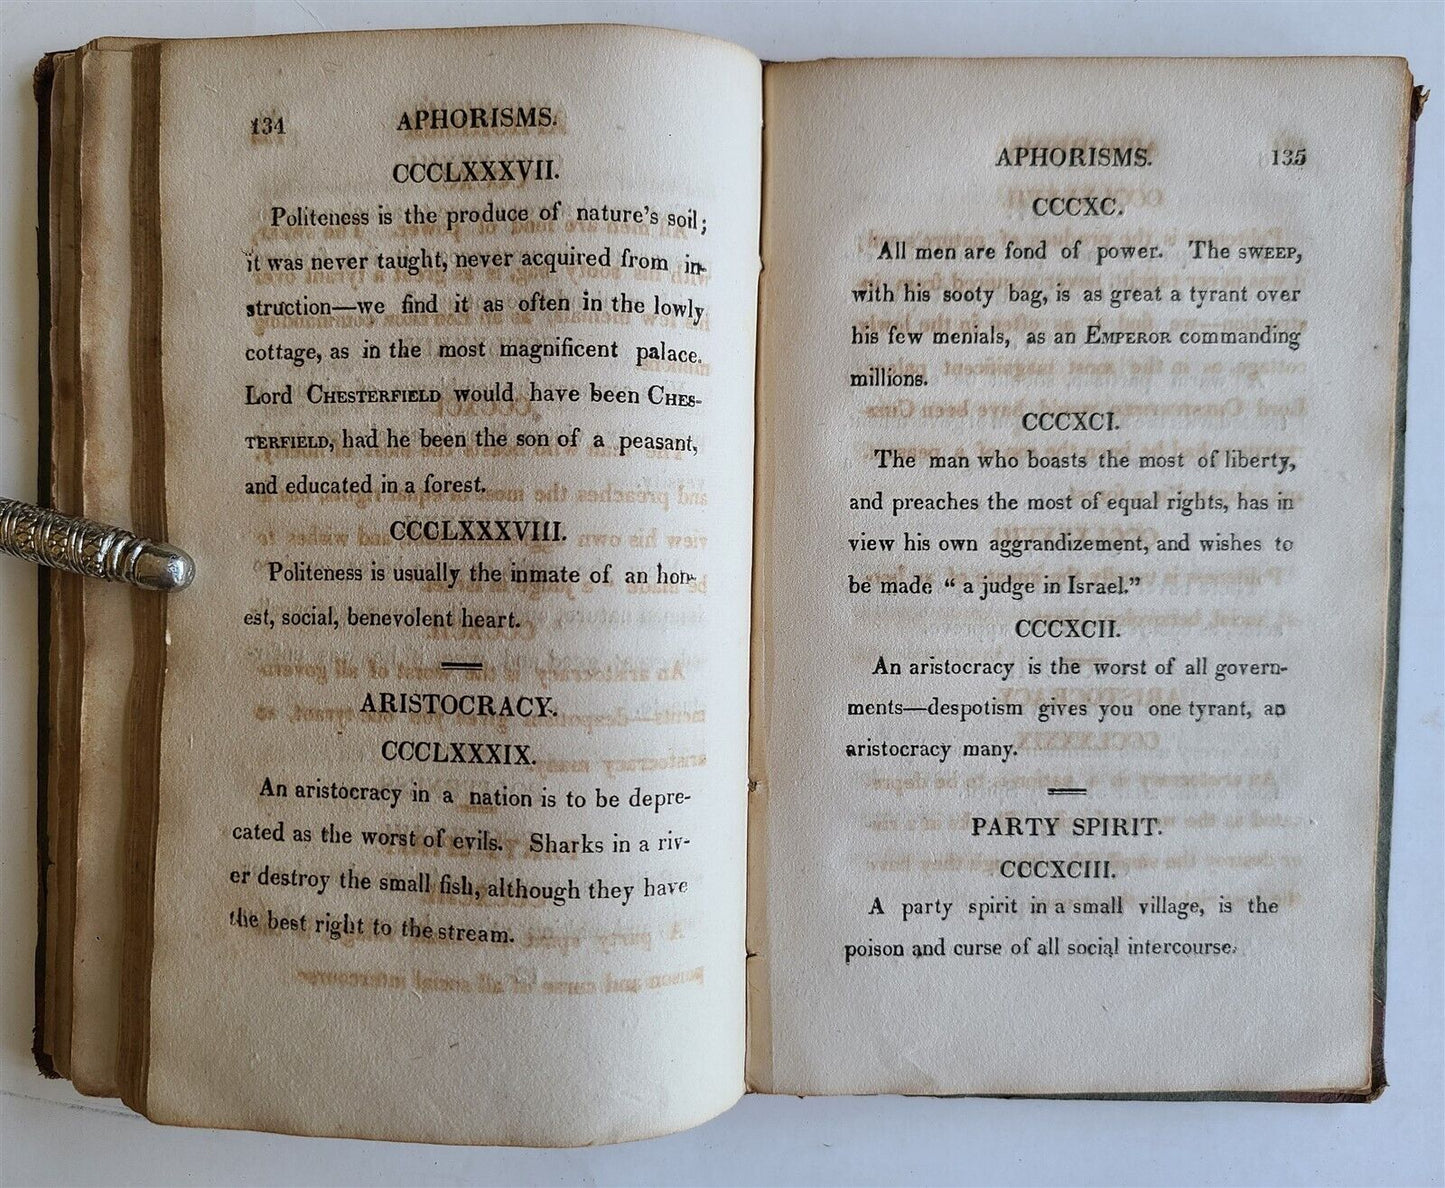 134 APHORISMS.
CCCLXXXVII.
Politeness is the produce of nature's soil;
it was never taught, never acquired from in-
struction—we find it as often in the lowly
cottage, as in the most magnificent palace.
Lord CHESTERFIELD would have been CHES-
TERFIELD, had he been the son of a peasant,
and educated in a forest.
CCCLXXXVIII.
Politeness is usually the inmate of an hon-
est, social, benevolent heart.
ARISTOCRACY.
CCCLXXXIX.
An aristocracy in a nation is to be depre-
cated as the worst of evils. Sharks in a riv-
er destroy the small fish, although they have
the best right to the stream.
APHORISMS. 135
CCCXC.
All men are fond of power. The SWEEP,
with his sooty bag, is as great a tyrant over
his few menials, as an EMPEROR commanding
millions.
CCCXCI.
The man who boasts the most of liberty,
and preaches the most of equal rights, has in
view his own aggrandizement, and wishes to
be made “ a judge in Israel.”
CCCXCII.
An aristocracy is the worst of all govern-
ments—despotism gives you one tyrant, an
aristocracy many.
PARTY SPIRIT.
CCCXCIII.
A party spirit in a small village, is the
poison and curse of all social intercourse.